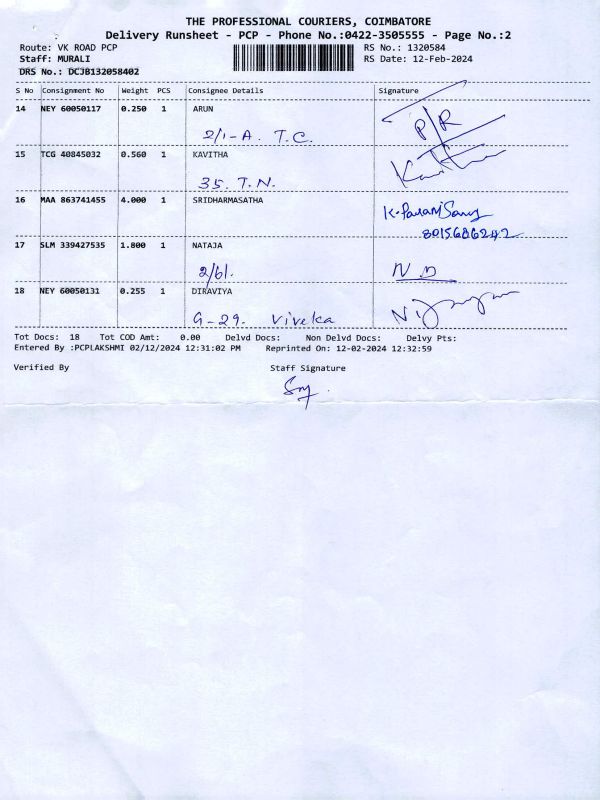 THE PROFESSIONAL COURIERS, COIMBATORE
Delivery Runsheet - PCP - Phone No.:0422-3505555 - Page No.:2
Route: VK ROAD PCP RS No.: 1320584
Staff: MURALI RS Date: 12-Feb-2024
DRS No.: DCJB132058402
S No Consignment No Weight PCS Consignee Details Signature
14 NEY 60050117 0.250 1 ARUN
2/1-A. T.C. P/R
15 TCG 40845032 0.560 1 KAVITHA
35. T.N.
16 MAA 863741455 4.000 1 SRIDHARMASATHA
8015686242
17 SLM 339427535 1.800 1 NATAJA
2/61.
18 NEY 60050131 0.255 1 DIRAVIYA
G-29. Viveka
Tot Docs: 18 Tot COD Amt: 0.00 Delvd Docs: Non Delvd Docs: Delvy Pts:
Entered By :PCPLAKSHMI 02/12/2024 12:31:02 PM Reprinted On: 12-02-2024 12:32:59
Verified By Staff Signature